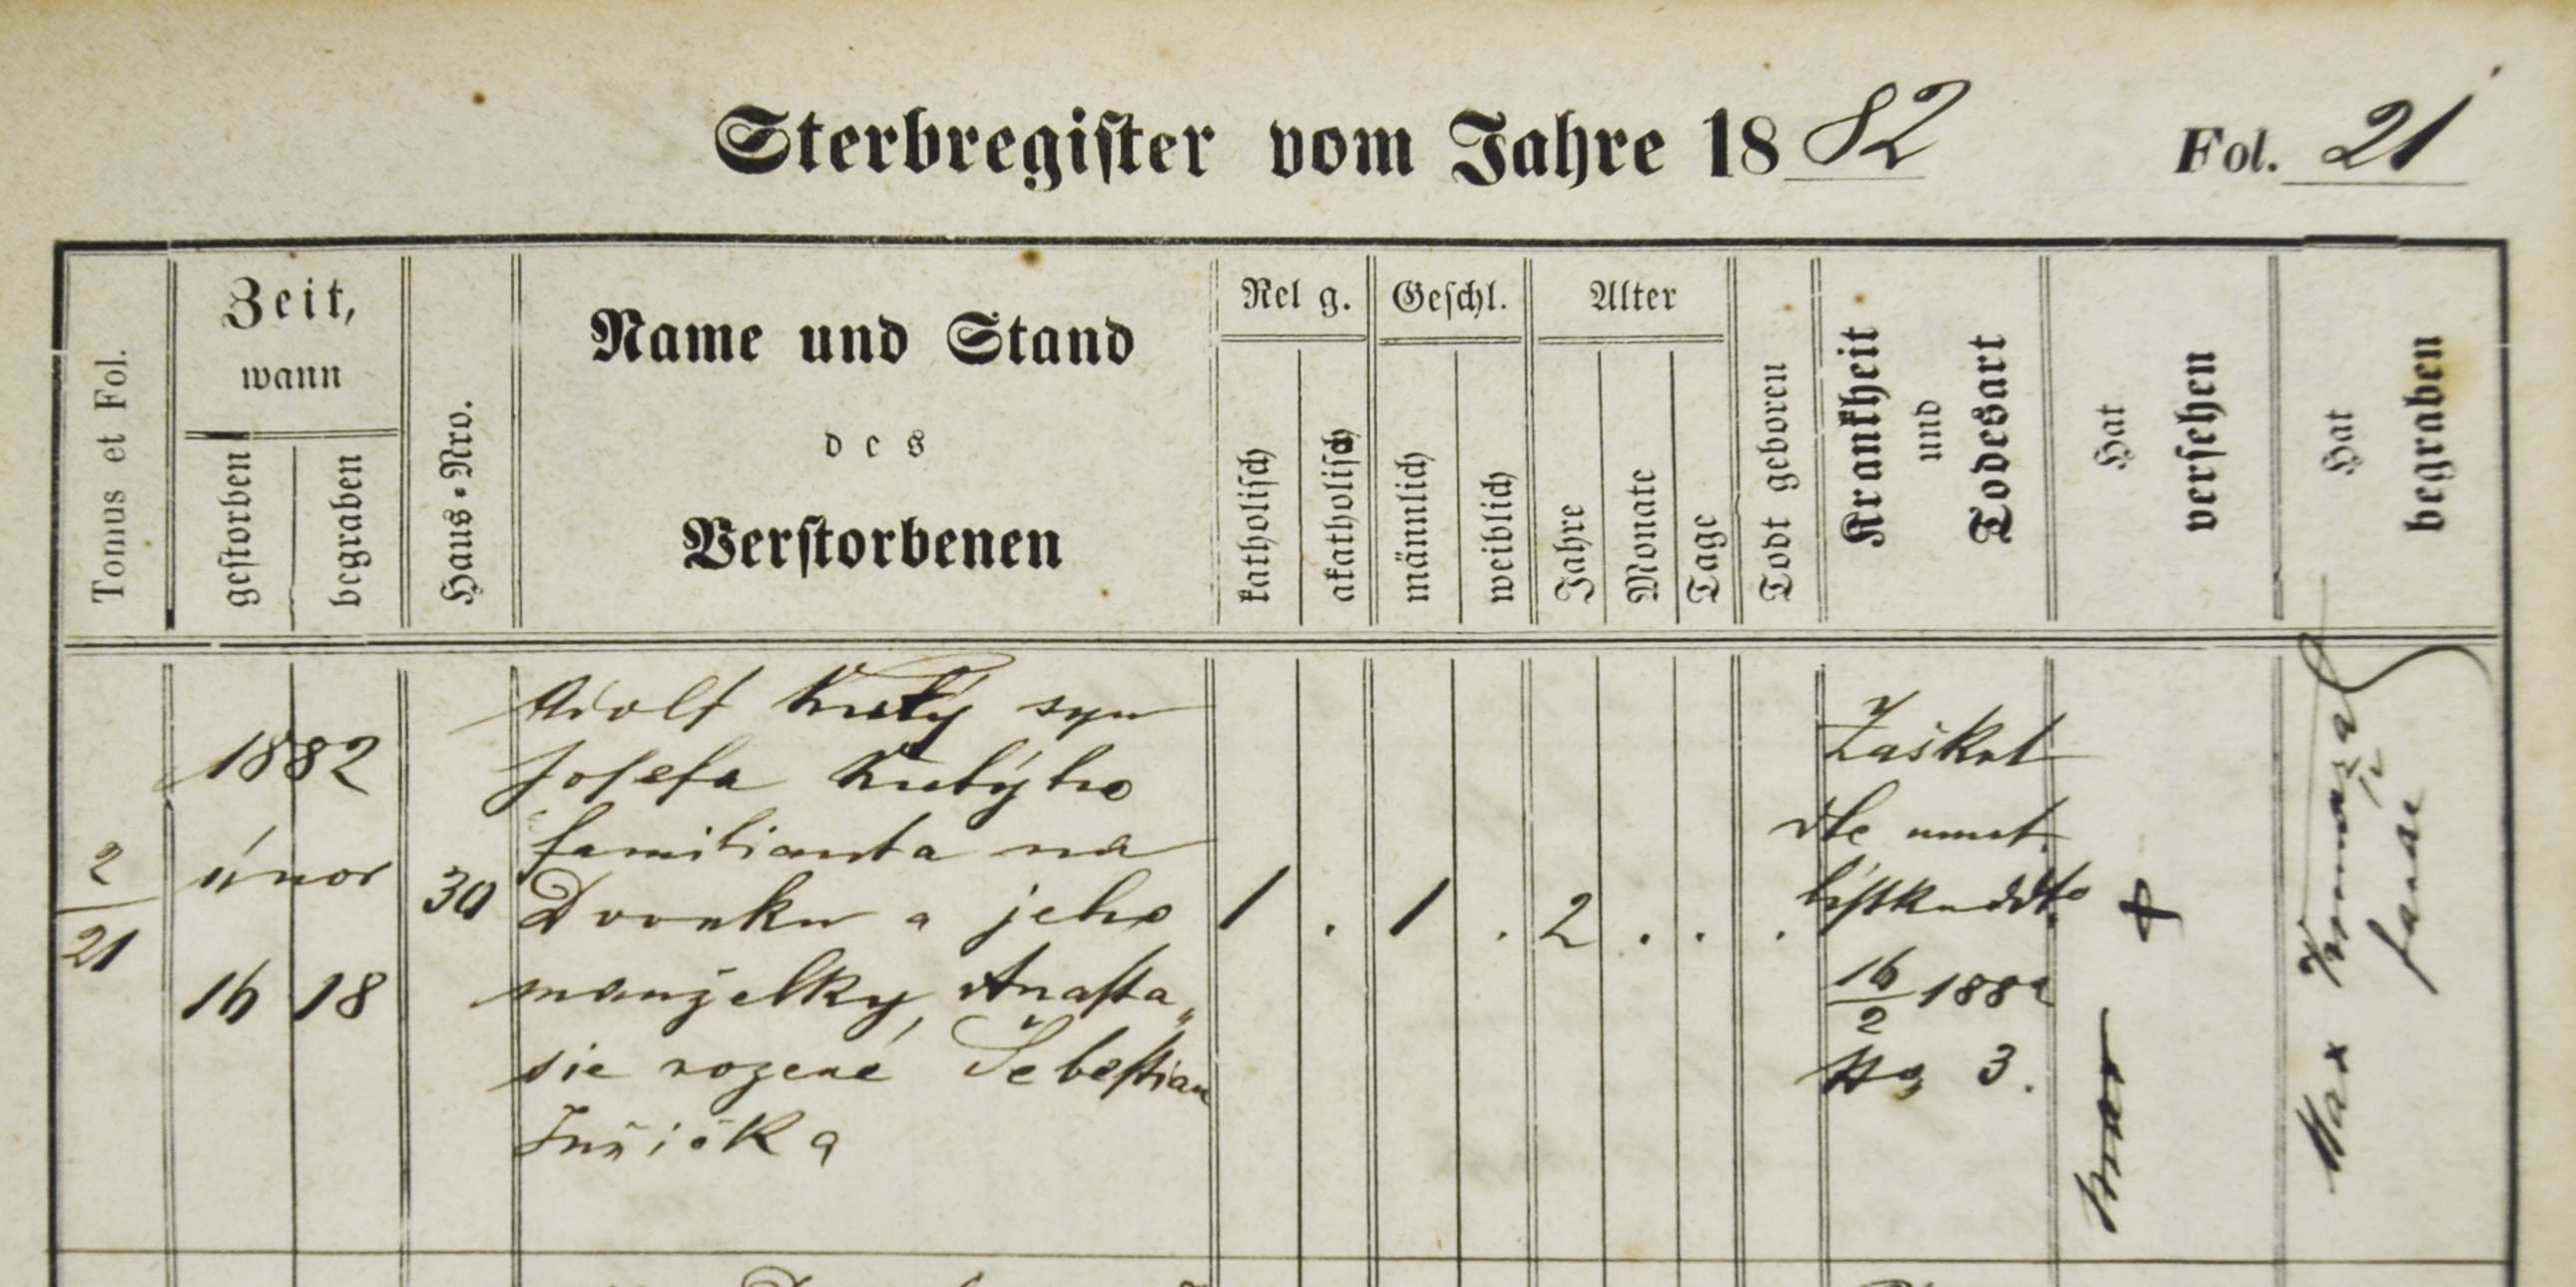 Sterbregister vom Jahre 1882
Fol. 21
Tomus et Fol.
Zeit,
wann
gestorben
begraben
Haus-Nro.
Name und Stand
des
Verstorbenen
Rel g.
katholisch
akatholisch
Geschl.
männlich
weiblich
Alter
Jahre
Monate
Tage
Todt geboren
Krankheit
und
Todesart
Hat
versehen
Hat
begraben
2
21
1882
únor
16 18
30
Adolf syn
Josefa
familianta na
Dvorku a jeho
manželky, Anasta„
sie rozené Šebestian
1 . 1 . 2 . . .
Záškrt
dle umrt.
lístku ddto
16
2
1882
No 3.
+
Max